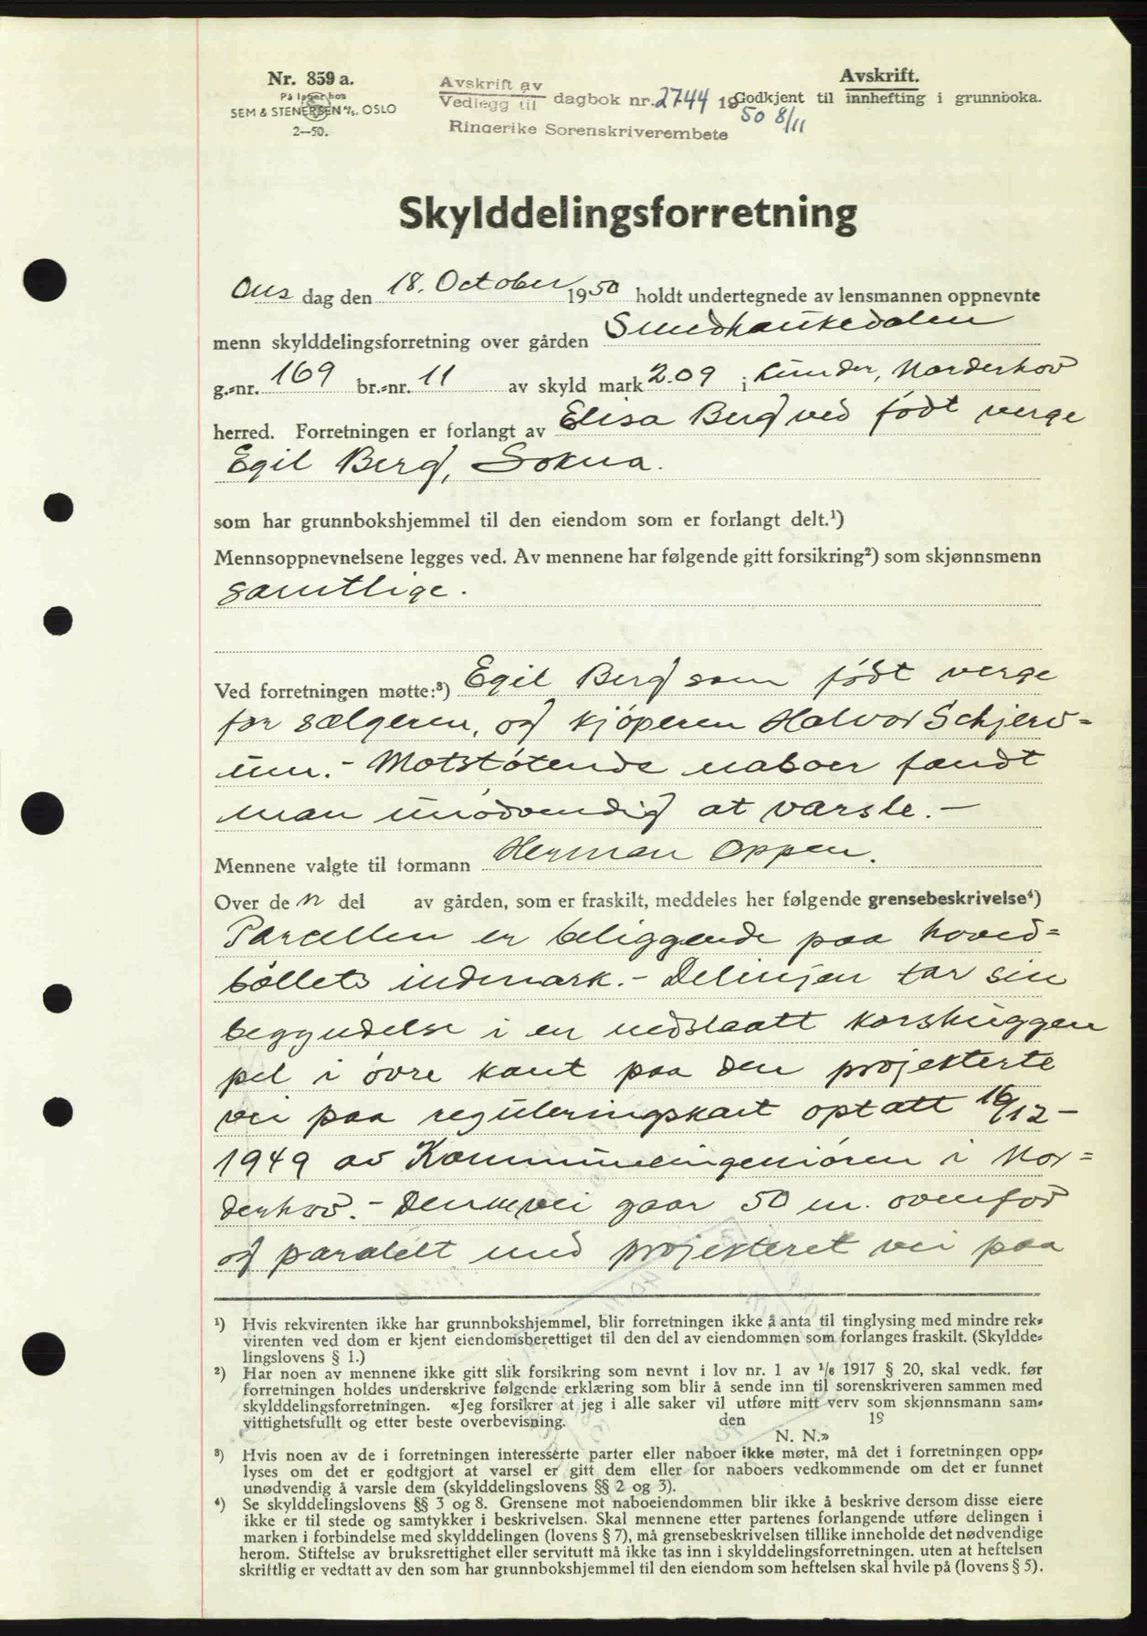 Nr. 859 a.
På lager hos
SEM & STENERSEN A/S. OSLO
2—50.
Avskrift av
Vedlegg til dagbok nr. 2744 19 50 8/11
Ringerike Sorenskriverembete
Avskrift.
Godkjent til innhefting i grunnboka.
Skylddelingsforretning
Ons dag den 18. October 1950 holdt undertegnede av lensmannen oppnevnte
menn skylddelingsforretning over gården Smedhaukedalen
g.-nr. 169 br.-nr. 11 av skyld mark 2.09 i Lunder, Norderhov
herred. Forretningen er forlangt av Elisa Berg ved födt verge
Egil Berg, Sokna.
som har grunnbokshjemmel til den eiendom som er forlangt delt.¹)
Mennsoppnevnelsene legges ved. Av mennene har følgende gitt forsikring²) som skjønnsmenn
samtlige.
Ved forretningen møtte:³) Egil Berg som födt verge
for sælgeren, og kjöperen Halvor Schjerv=
un.- Motstötende naboer fandt
man unödvendig at varsle.—
Mennene valgte til formann Herman Oppen.
Over de n del av gården, som er fraskilt, meddeles her følgende grensebeskrivelse⁴)
Parcellen er beliggende paa hoved=
böllets indmark.- Delinjen tar sin
beggyndelse i en nedslaatt korshuggen
pel i övre kant paa den projekterte
vei paa reguleringskart optatt 16/12-
1949 av Kommuneingeniören i Nor=
derhov.- Denne vei gaar 50 m. ovenfor
og paralelt med projekteret vei paa
¹) Hvis rekvirenten ikke har grunnbokshjemmel, blir forretningen ikke å anta til tinglysing med mindre rek-
virenten ved dom er kjent eiendomsberettiget til den del av eiendommen som forlanges fraskilt. (Skyldde-
lingslovens § 1.)
²) Har noen av mennene ikke gitt slik forsikring som nevnt i lov nr. 1 av 1/6 1917 § 20, skal vedk. før
forretningen holdes underskrive følgende erklæring som blir å sende inn til sorenskriveren sammen med
skylddelingsforretningen. «Jeg forsikrer at jeg i alle saker vil utføre mitt verv som skjønnsmann sam-
vittighetsfullt og etter beste overbevisning. den 19
N. N.»
³) Hvis noen av de i forretningen interesserte parter eller naboer ikke møter, må det i forretningen opp-
lyses om det er godtgjort at varsel er gitt dem eller for naboers vedkommende om det er funnet
unødvendig å varsle dem (skylddelingslovens §§ 2 og 3).
⁴) Se skylddelingslovens §§ 3 og 8. Grensene mot naboeiendommen blir ikke å beskrive dersom disse eiere
ikke er til stede og samtykker i beskrivelsen. Skal mennene etter partenes forlangende utføre delingen i
marken i forbindelse med skylddelingen (lovens § 7), må grensebeskrivelsen tillike inneholde det nødvendige
herom. Stiftelse av bruksrettighet eller servitutt må ikke tas inn i skylddelingsforretningen, uten at heftelsen
skriftlig er vedtatt av den som har grunnbokshjemmel til den eiendom som heftelsen skal hvile på (lovens § 5).